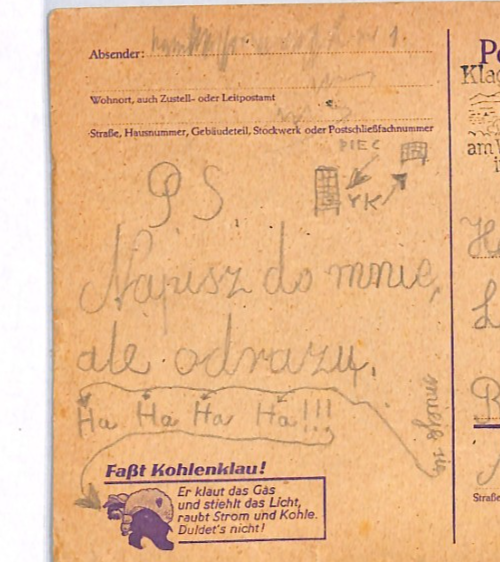 Absender:
Wohnort, auch Zustell- oder Leitpostamt
Straße, Hausnummer, Gebäudeteil, Stockwerk oder Postschließfachnummer
PIEC
PS.
Napisz do mnie,
ale odrazu.
Ha Ha Ha Ha!!!
śmieje się
Faßt Kohlenklau!
Er klaut das Gas
und stiehlt das Licht,
raubt Strom und Kohle.
Duldet's nicht!
Po
Klag
am W
i
H
L
B
Straße